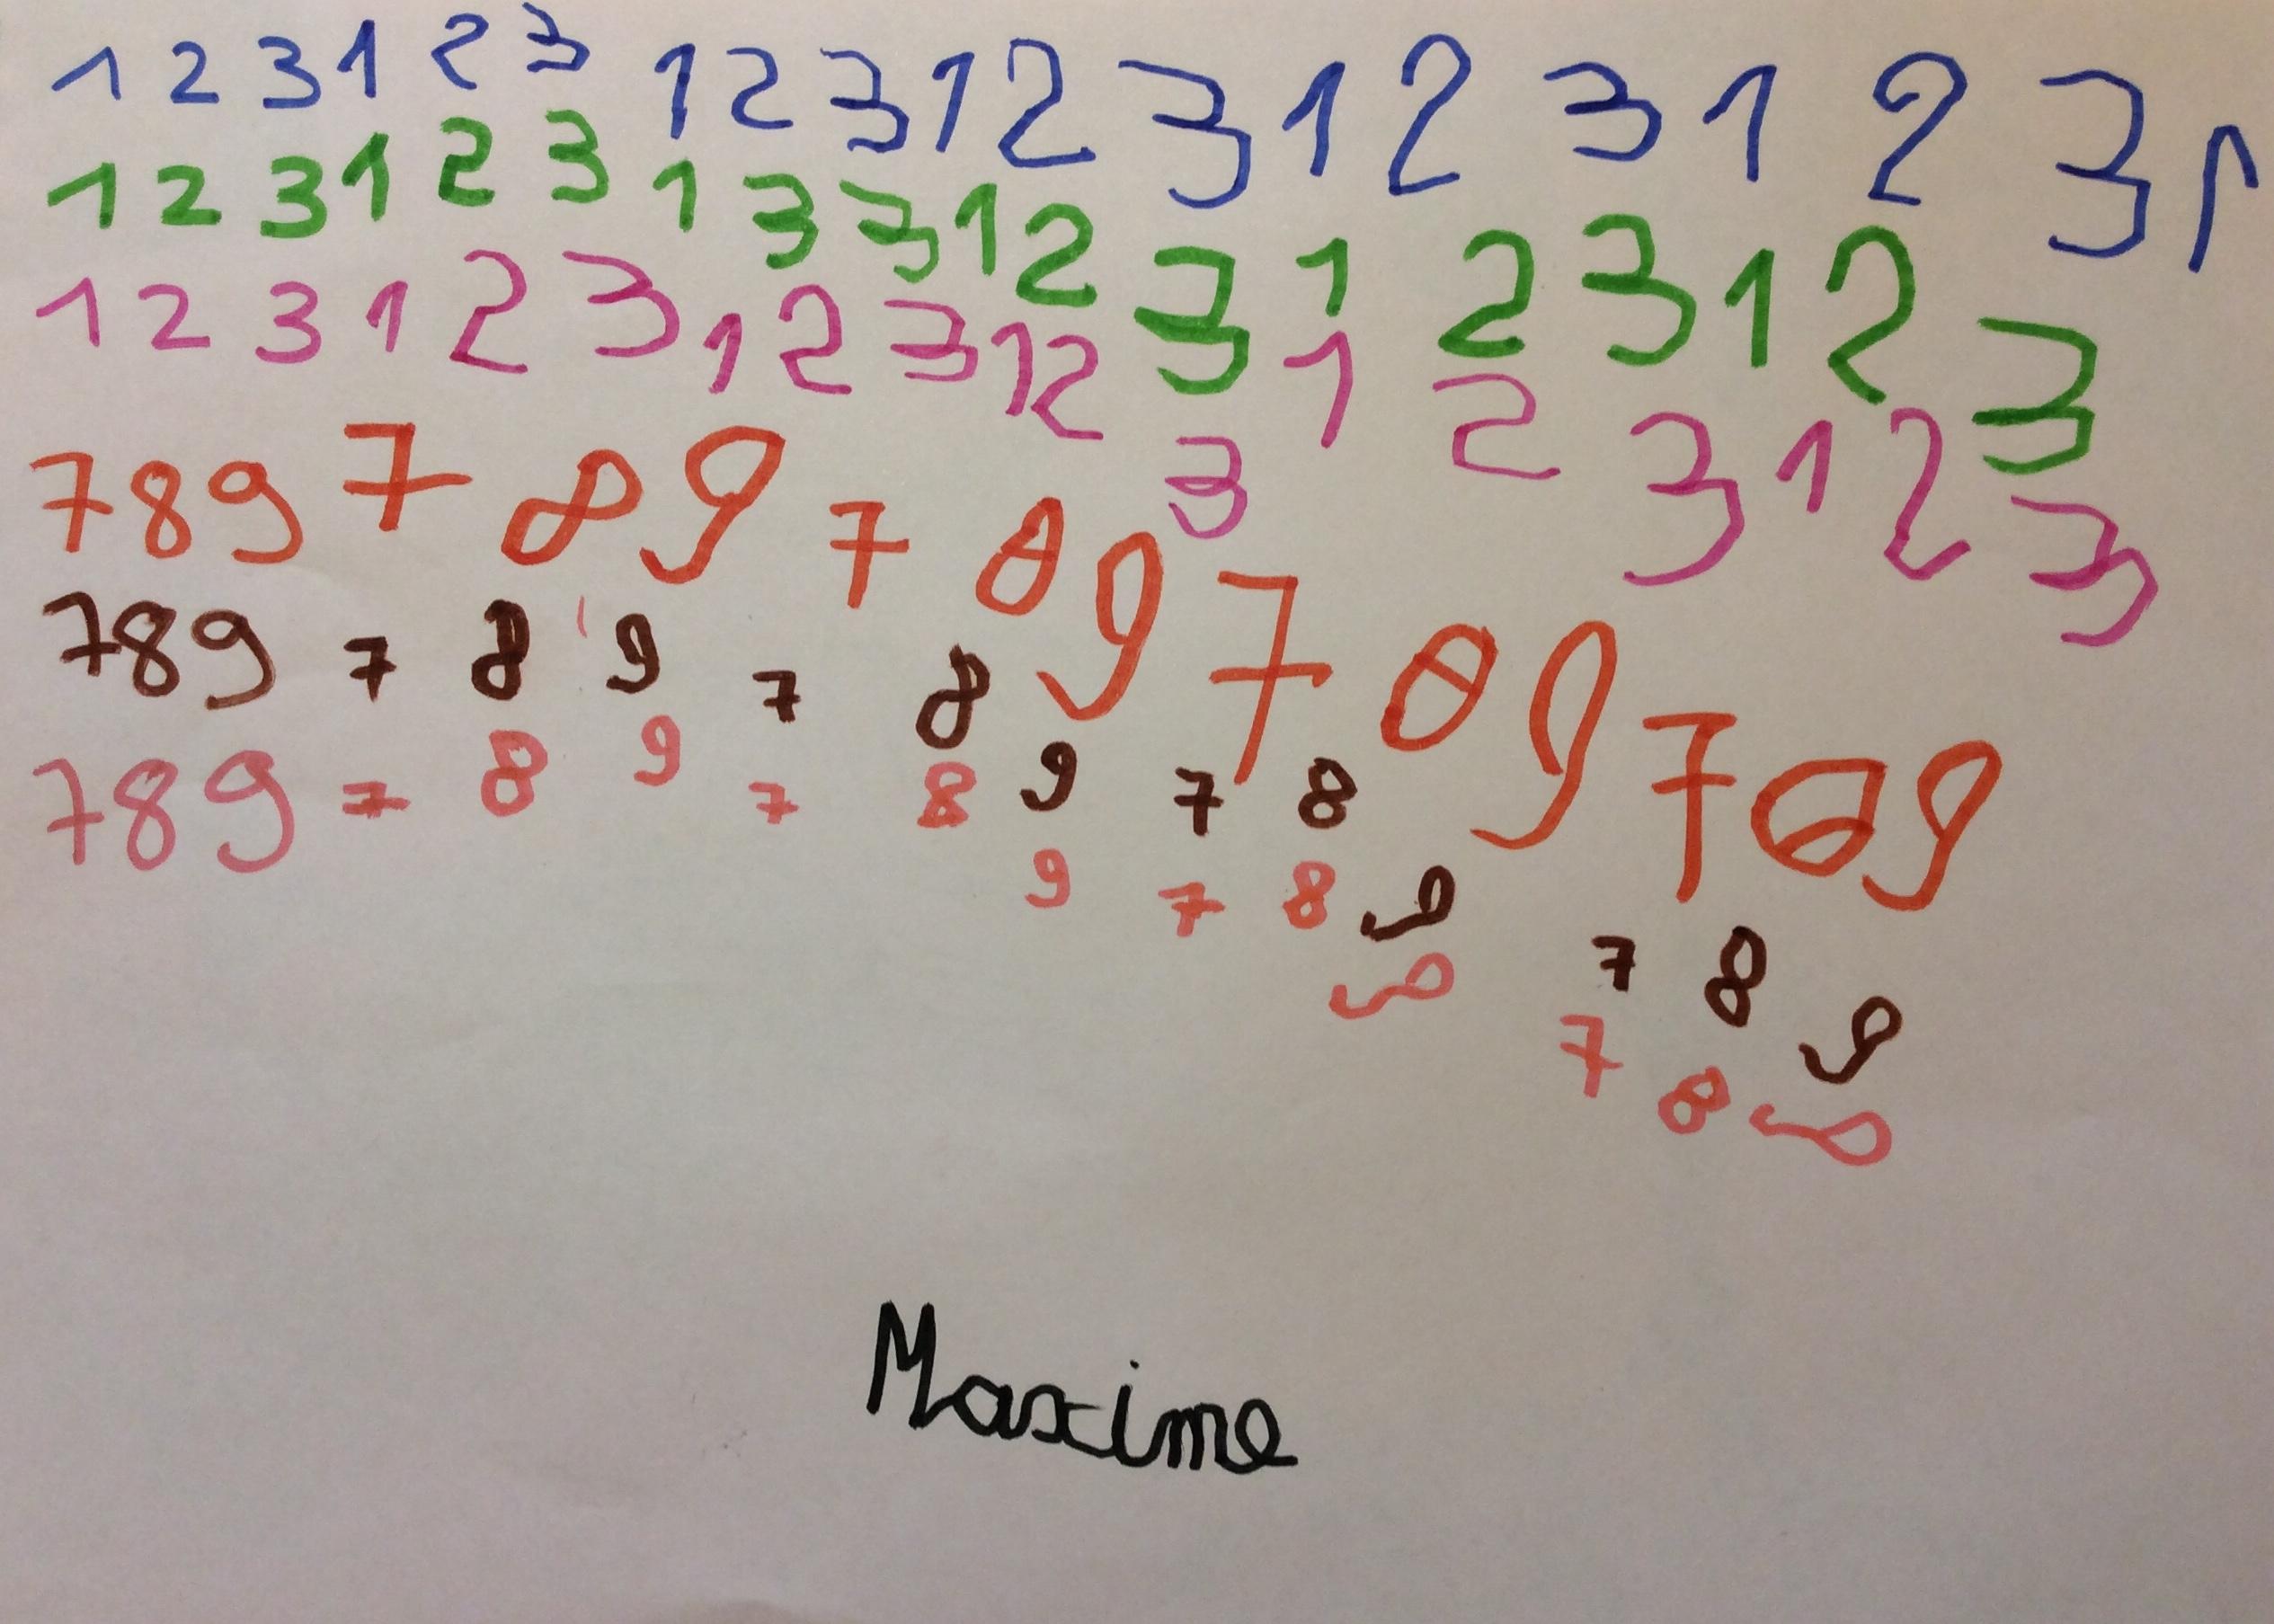 1 2 3 1 2 3 1 2 3 1 2 3 1 2 3 1 2 3 1
1 2 3 1 2 3 1 3 3 1 2 3 1 2 3 1 2 3
1 2 3 1 2 3 1 2 3 1 2 3 1 2 3 1 2 3
7 8 9 7 8 9 7 8 9 7 8 9 7 8 9
7 8 9 7 8 9 7 8 9 7 8 9 7 8 9
7 8 9 7 8 9 7 8 9 7 8 9 7 8 9
Maxime